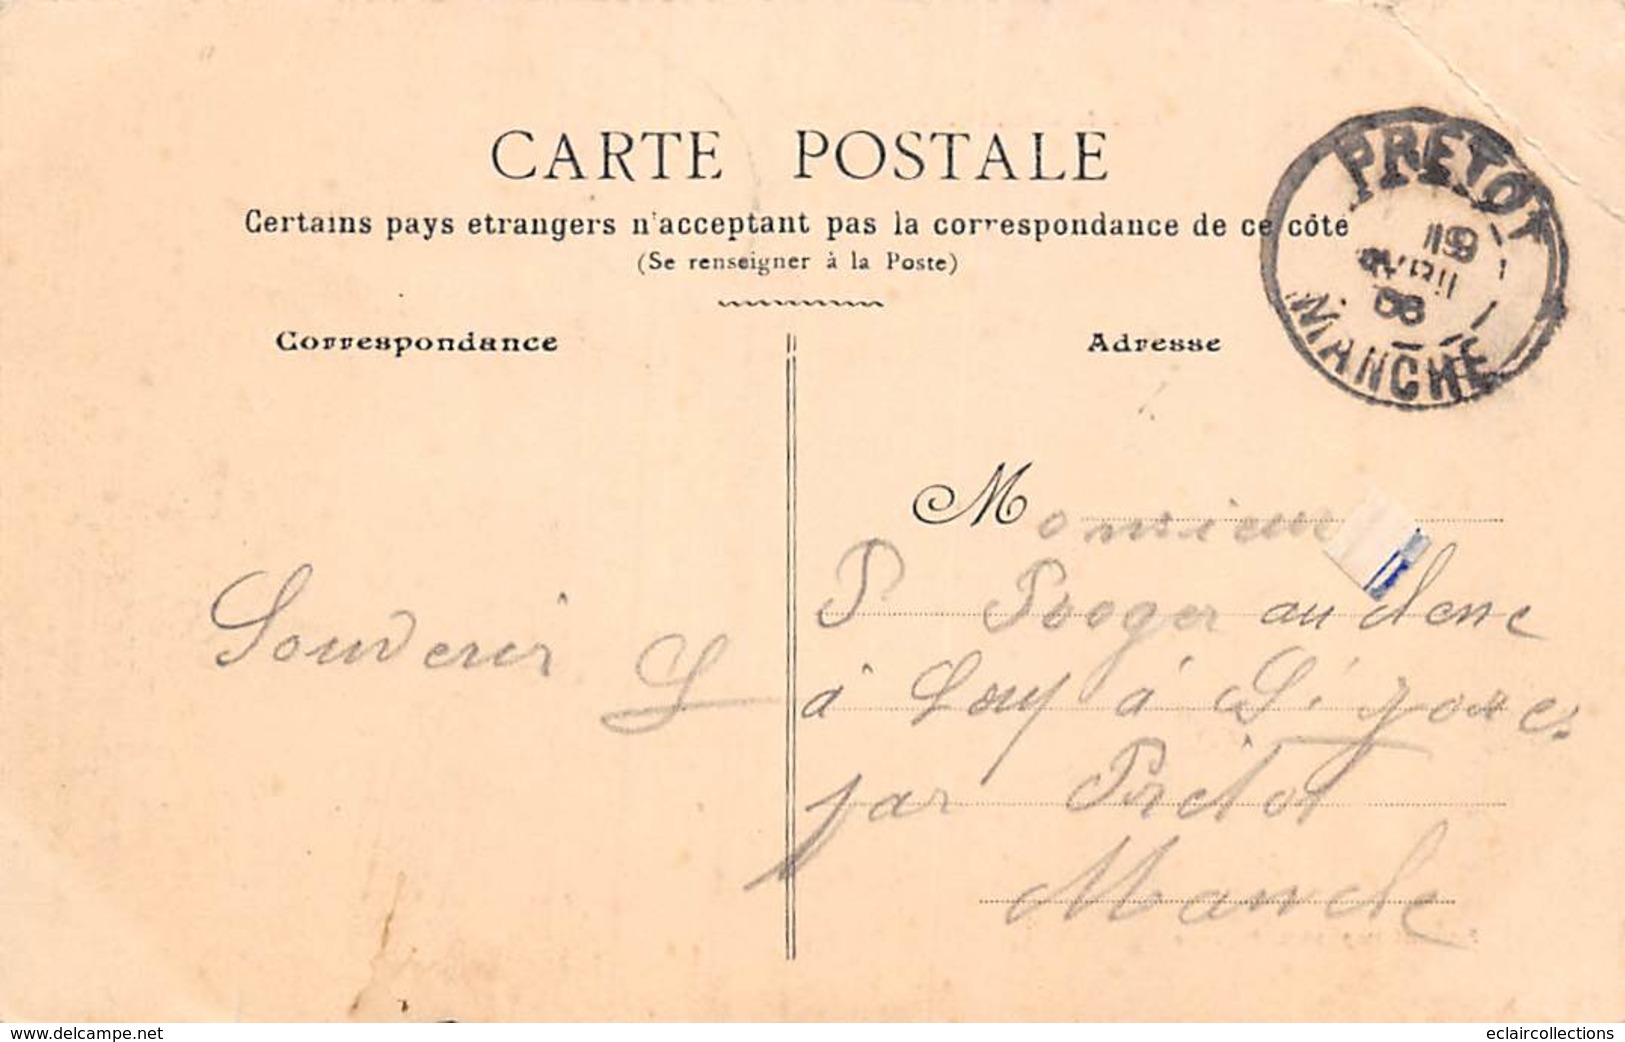 CARTE POSTALE
Certains pays etrangers n'acceptant pas la correspondance de ce côté
(Se renseigner à la Poste)
Correspondance
Adresse
PRETOT
MANCHE
Monsieur
P au
à à
par Prétot
Manche
Souvenir
www.delcampe.net
eclaircollections